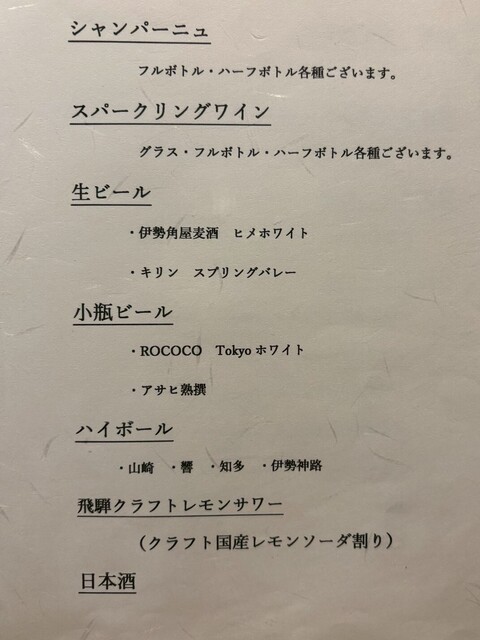 シャンパーニュ
フルボトル・ハーフボトル各種ございます。
スパークリングワイン
グラス・フルボトル・ハーフボトル各種ございます。
生ビール
・伊勢角屋麦酒　ヒメホワイト
・キリン　スプリングバレー
小瓶ビール
・ROCOCO　Tokyoホワイト
・アサヒ熟撰
ハイボール
・山崎　・響　・知多　・伊勢神路
飛騨クラフトレモンサワー
（クラフト国産レモンソーダ割り）
日本酒